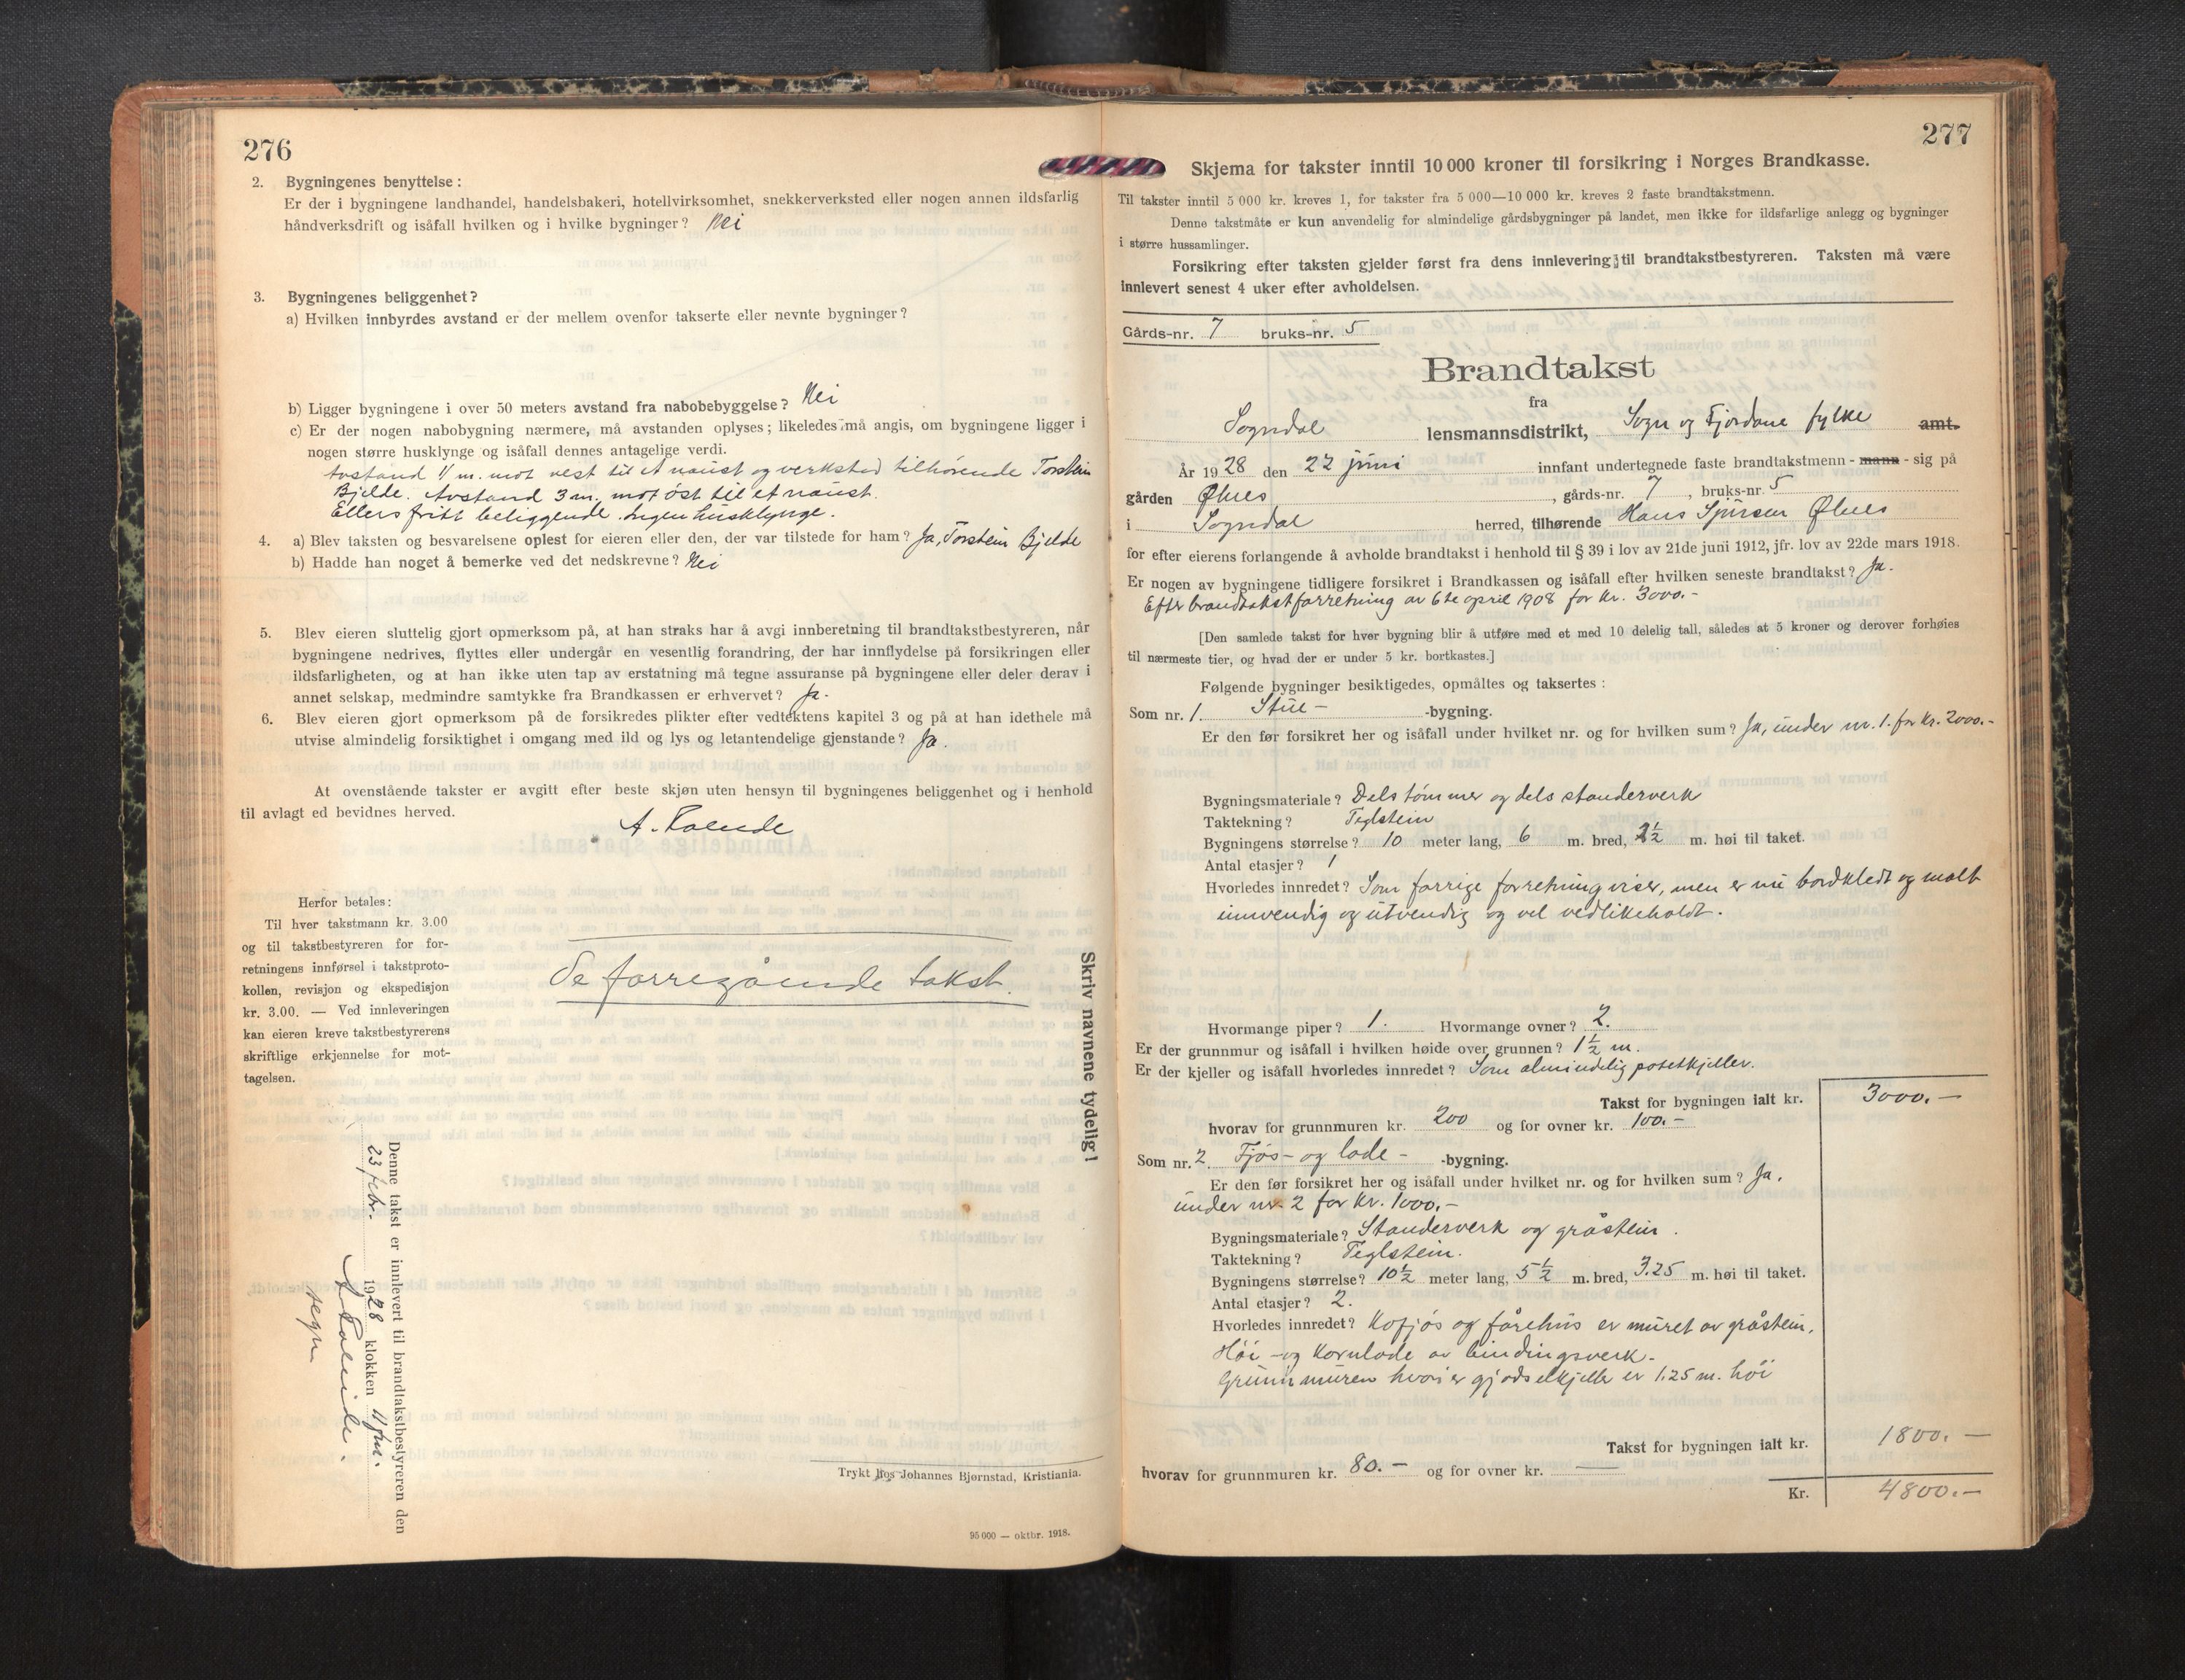 276
2. Bygningenes benyttelse:
Er der i bygningene landhandel, handelsbakeri, hotellvirksomhet, snekkerverksted eller nogen annen ildsfarlig
håndverksdrift og isåfall hvilken og i hvilke bygninger? Nei
3. Bygningenes beliggenhet?
a) Hvilken innbyrdes avstand er der mellem ovenfor takserte eller nevnte bygninger?
b) Ligger bygningene i over 50 meters avstand fra nabobebyggelse? Nei
c) Er der nogen nabobygning nærmere, må avstanden oplyses; likeledes må angis, om bygningene ligger i
nogen større husklynge og isåfall dennes antagelige verdi.
Avstand 11 m. mot vest til et naust og verksted tilhørende Torstein
Bjelde. Avstand 3 m. mot øst til et naust.
Ellers fritt beliggende. Ingen husklynge.
4. a) Blev taksten og besvarelsene oplest for eieren eller den, der var tilstede for ham? Ja, Torstein Bjelde
b) Hadde han noget å bemerke ved det nedskrevne? Nei
5. Blev eieren sluttelig gjort opmerksom på, at han straks har å avgi innberetning til brandtakstbestyreren, når
bygningene nedrives, flyttes eller undergår en vesentlig forandring, der har innflydelse på forsikringen eller
ildsfarligheten, og at han ikke uten tap av erstatning må tegne assuranse på bygningene eller deler derav i
annet selskap, medmindre samtykke fra Brandkassen er erhvervet? Ja.
6. Blev eieren gjort opmerksom på de forsikredes plikter efter vedtektens kapitel 3 og på at han idethele må
utvise almindelig forsiktighet i omgang med ild og lys og letantendelige gjenstande? Ja.
At ovenstående takster er avgitt efter beste skjøn uten hensyn til bygningenes beliggenhet og i henhold
til avlagt ed bevidnes herved.
Herfor betales:
Til hver takstmann kr. 3.00
og til takstbestyreren for for-
retningens innførsel i takstproto-
kollen, revisjon og ekspedisjon
kr. 3.00. — Ved innleveringen
kan eieren kreve takstbestyrerens
skriftlige erkjennelse for mot-
tagelsen.
Se forregående takst.
Skriv navnene tydelig!
Denne takst er innlevert til brandtakstbestyreren den
23 febr. 1928 klokken 11 fm.
Trykt hos Johannes Bjørnstad, Kristiania.
95 000 — oktbr. 1918.
277
Skjema for takster inntil 10 000 kroner til forsikring i Norges Brandkasse.
Til takster inntil 5 000 kr. kreves 1, for takster fra 5 000—10 000 kr. kreves 2 faste brandtakstmenn.
Denne takstmåte er kun anvendelig for almindelige gårdsbygninger på landet, men ikke for ildsfarlige anlegg og bygninger
i større hussamlinger.
Forsikring efter taksten gjelder først fra dens innlevering til brandtakstbestyreren. Taksten må være
innlevert senest 4 uker efter avholdelsen.
Gårds-nr. 7 bruks-nr. 5
Brandtakst
fra
Sogndal lensmannsdistrikt, Sogn og Fjordane fylke amt.
År 1928 den 22 juni innfant undertegnede faste brandtakstmenn - mann - sig på
gården Ølnes, gårds-nr. 7, bruks-nr. 5
i Sogndal herred, tilhørende Hans Sjursen Ølnes
for efter eierens forlangende å avholde brandtakst i henhold til § 39 i lov av 21de juni 1912, jfr. lov av 22de mars 1918.
Er nogen av bygningene tidligere forsikret i Brandkassen og isåfall efter hvilken seneste brandtakst? Ja.
Efter brandtakstforretning av 6te april 1908 for kr. 3000.-
[Den samlede takst for hver bygning blir å utføre med et med 10 delelig tall, således at 5 kroner og derover forhøies
til nærmeste tier, og hvad der er under 5 kr. bortkastes.]
Følgende bygninger besiktigedes, opmåltes og taksertes:
Som nr. 1. Stue- -bygning.
Er den før forsikret her og isåfall under hvilket nr. og for hvilken sum? Ja, under nr. 1. for kr. 2000.-
Bygningsmateriale? Dels tømmer og dels standerverk
Taktekning? Teglstein
Bygningens størrelse? 10 meter lang, 6 m. bred, 2½ m. høi til taket.
Antal etasjer? 1
Hvorledes innredet? Som forrige forretning viser, men er nu bordkledt og malt
innvendig og utvendig og vel vedlikeholdt.
Hvormange piper? 1. Hvormange ovner? 2.
Er der grunnmur og isåfall i hvilken høide over grunnen? 1½ m.
Er der kjeller og isåfall hvorledes innredet? Som almindelig potetkjeller.
Takst for bygningen ialt kr. 3000.-
hvorav for grunnmuren kr. 200 og for ovner kr. 100.-
Som nr. 2. Fjøs- og lade- -bygning.
Er den før forsikret her og isåfall under hvilket nr. og for hvilken sum? Ja,
under nr. 2 for kr. 1000.-
Bygningsmateriale? Standerverk og gråstein.
Taktekning? Teglstein.
Bygningens størrelse? 10½ meter lang, 5½ m. bred, 3.25 m. høi til taket.
Antal etasjer? 2.
Hvorledes innredet? Kofjøs og fårehus er muret av gråstein,
Høi- og kornlade av bindingsverk.
Grunnmuren hvori er gjødselkjeller er 1.25 m. høi
Takst for bygningen ialt kr. 1800.-
hvorav for grunnmuren kr. 80.- og for ovner kr. —
Kr. 4800.-